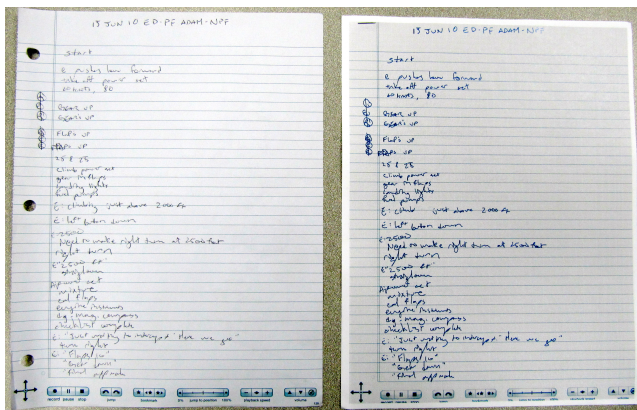 15 JUN 10 ED-PF ADAM-NPF
start
E pushes lever forward
take off power set
GEAR UP
GEAR'S UP
FLAPS UP
FLAPS UP
25 & 25
climb power set
gear in flaps
landing lights
fuel pumps
E: climbing just above 2000 ft
E: left button down
E: 2500
Need to make right turn at 2500 feet
right turn
E: "2500 ft"
power set
mixture
cowl flaps
engine instruments
dg: mag. compass
checklist complete
E: "Just waiting to intercept" "Here we go"
turn right
E: "Flaps 10"
"Gear down"
"final approach
record pause stop
jump
bookmark
0% jump to position 100%
playback speed
volume
15 JUN 10 ED-PF ADAM-NPF
start
E pushes lever forward
take off power set
GEAR UP
GEAR'S UP
FLAPS UP
FLAPS UP
25 & 25
climb power set
gear in flaps
landing lights
fuel pumps
E: climb just above 2000 ft
E: left button down
E: 2500
Need to make right turn at 2500 feet
right turn
E: "2500 ft"
power set
mixture
cowl flaps
engine instruments
dg: mag. compass
checklist complete
E: "Just waiting to intercept" "Here we go"
turn right
E: "Flaps 10"
"Gear down"
"Final approach